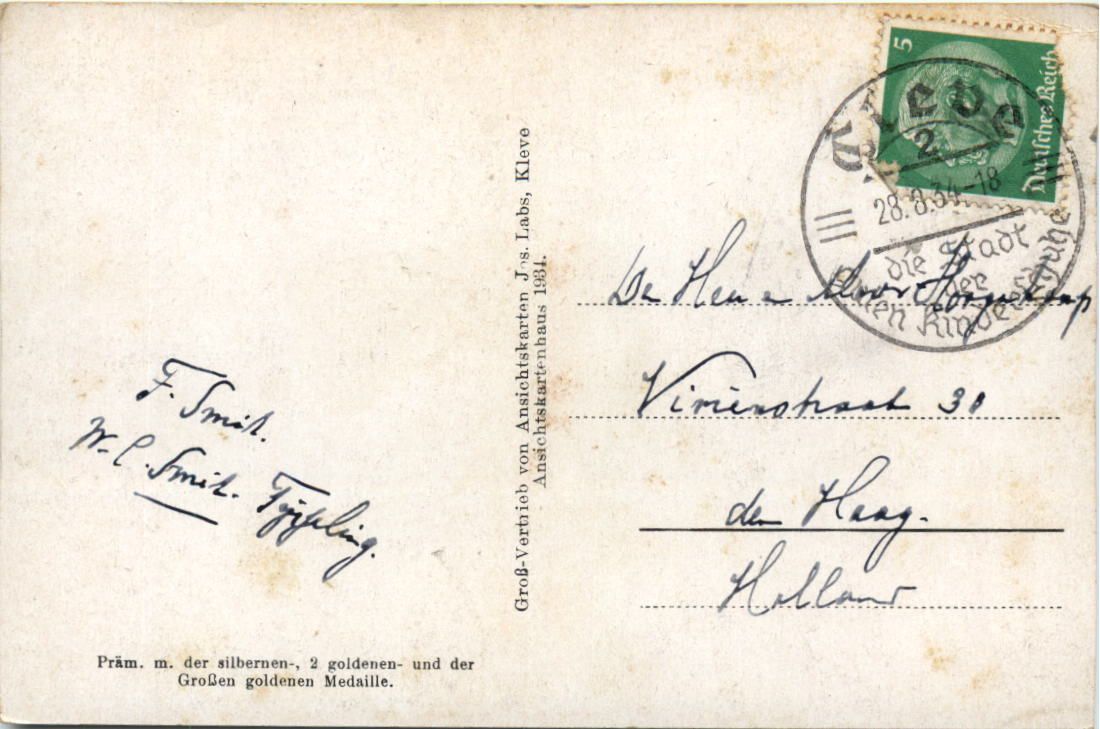 F. Smit.
W. C. Smit-
Präm. m. der silbernen-, 2 goldenen- und der
Großen goldenen Medaille.
Groß-Vertrieb von Ansichtskarten Jos. Labs, Kleve
Ansichtskartenhaus 1934.
5
Deutsches Reich
Cleve
2
28.8.34-18
die Stadt
der
guten Kinderschuhe
De Heer
den Haag.
Holland